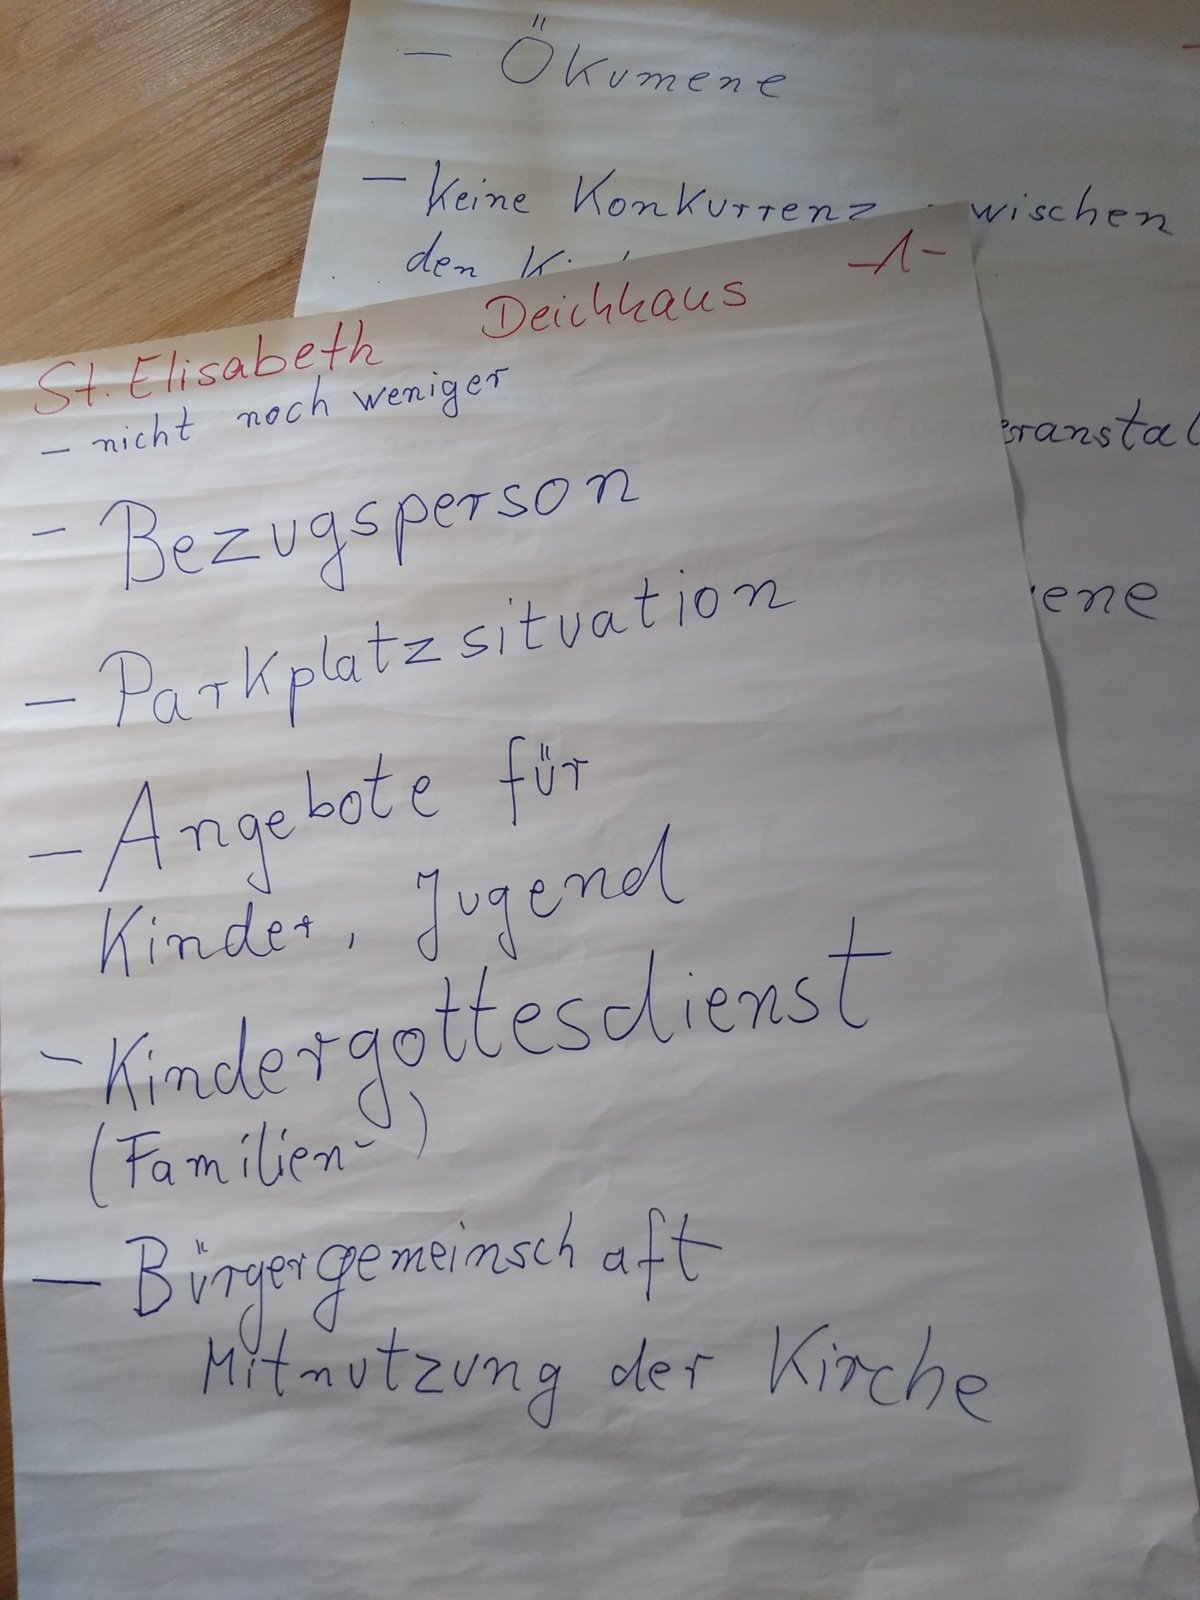 - Ökumene
- keine Konkurrenz zwischen
den
St. Elisabeth Deichhaus -1-
- nicht noch weniger
- Bezugsperson
- Parkplatzsituation
- Angebote für
Kinder, Jugend
- Kindergottesdienst
(Familien-)
- Bürgergemeinschaft
Mitnutzung der Kirche